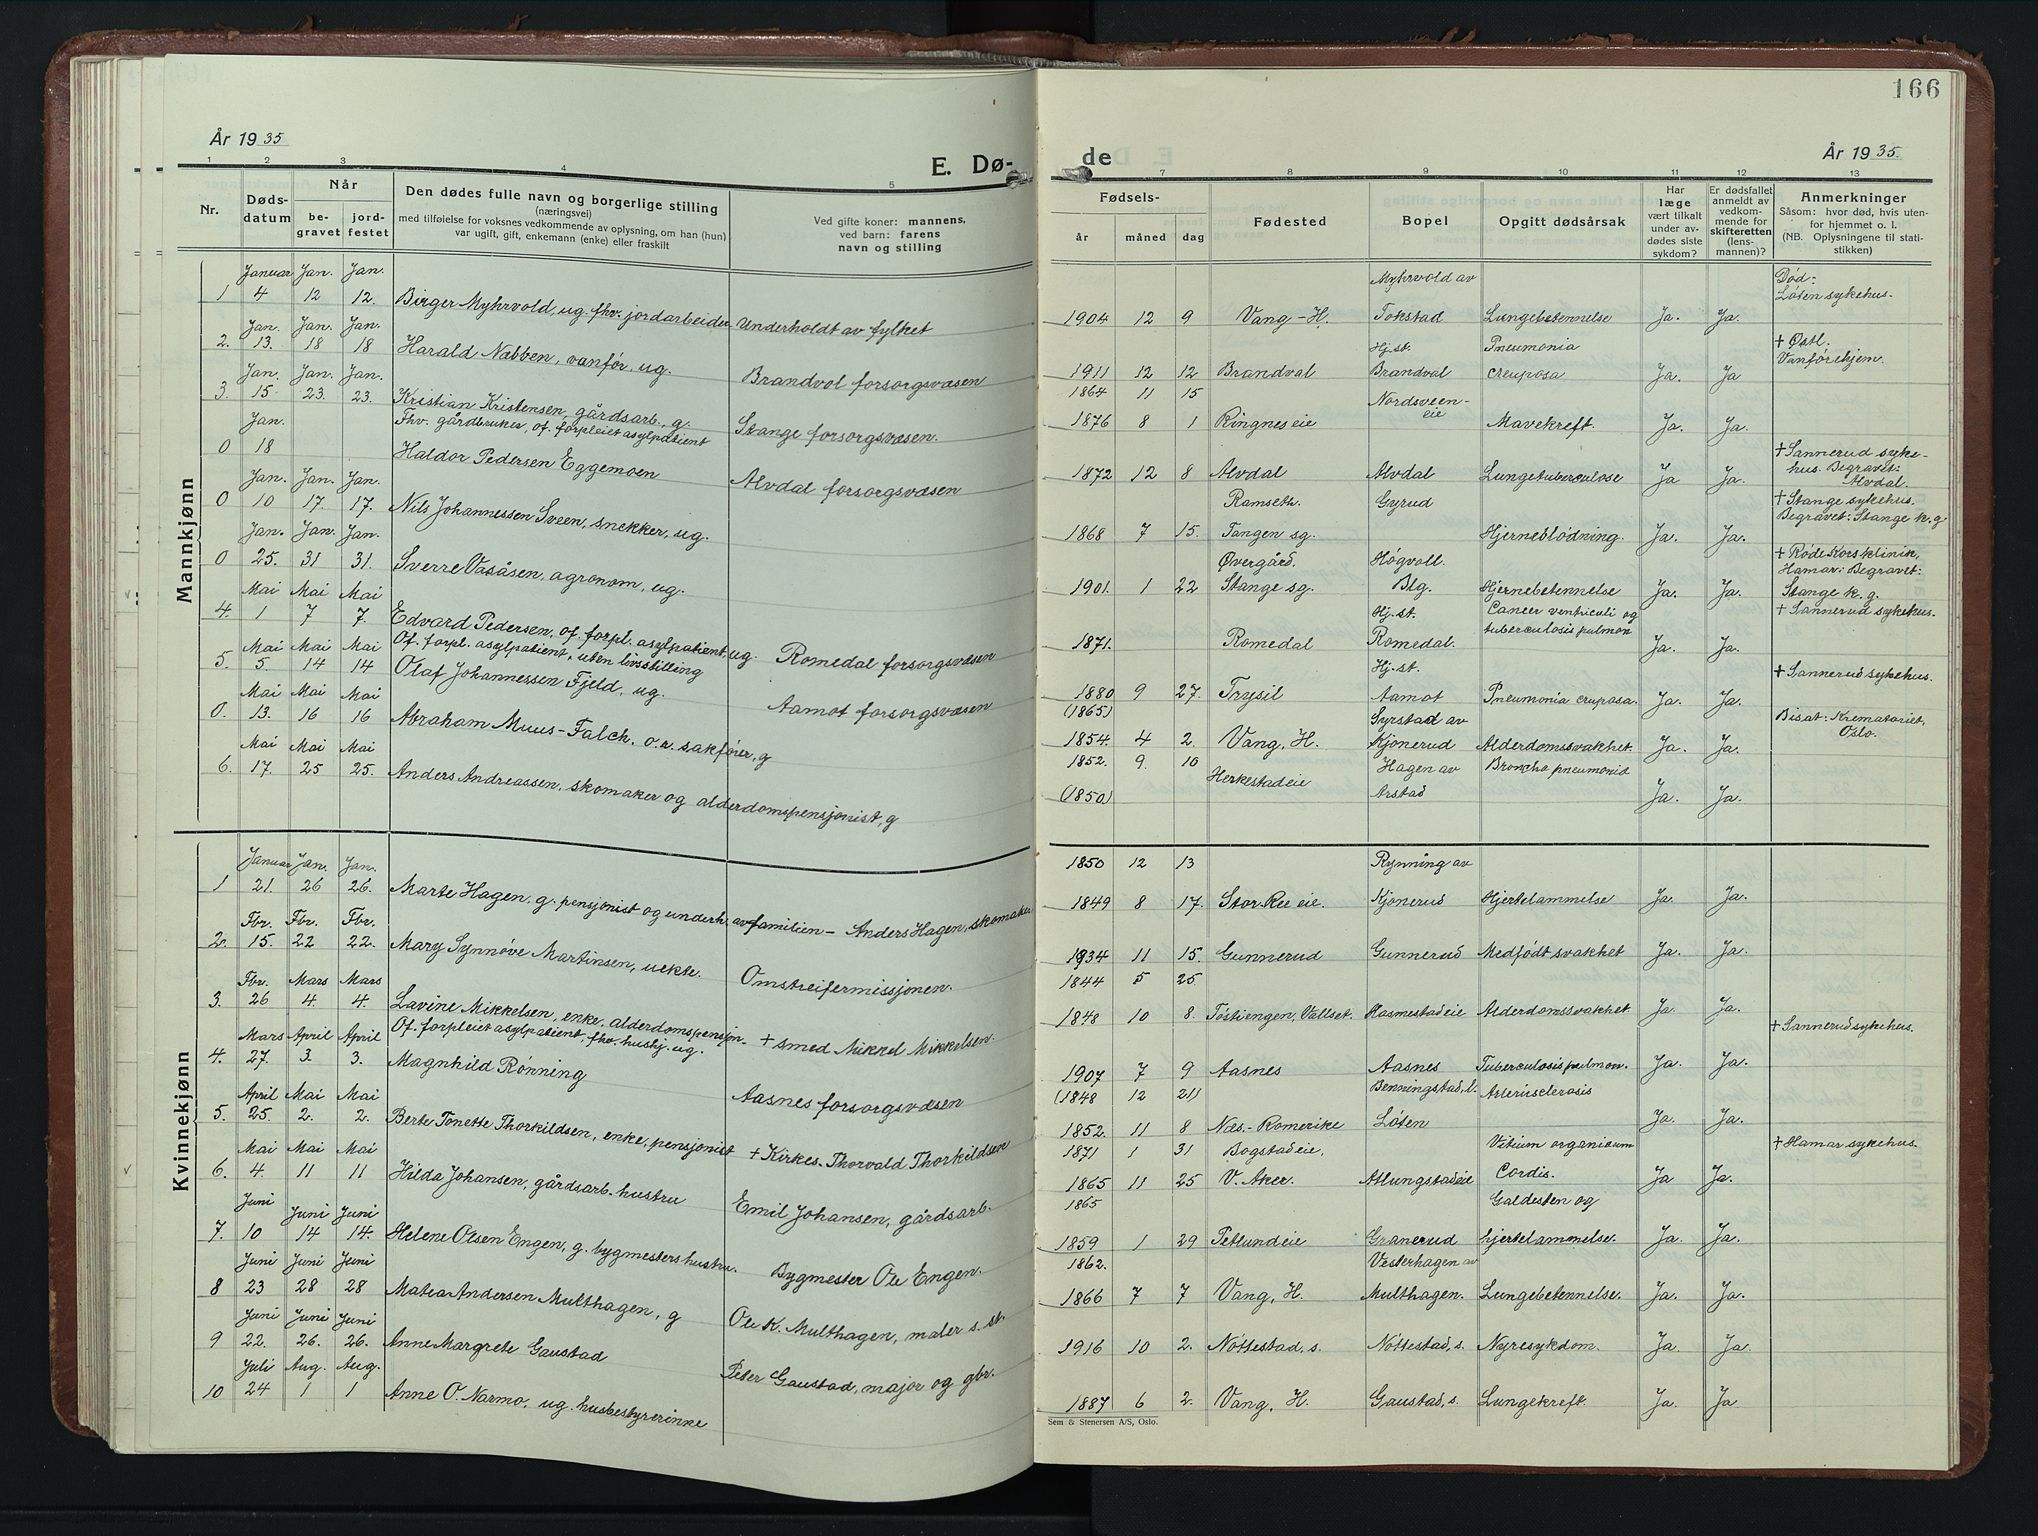 166
År 1935
E. Dø-
de
År 1935.
1 2 3 4 5
7 8 9 10 11 12 13
Nr.
Døds-
datum
Når
be-
gravet
jord-
festet
Den dødes fulle navn og borgerlige stilling
(næringsvei)
med tilføielse for voksnes vedkommende av oplysning, om han (hun)
var ugift, gift, enkemann (enke) eller fraskilt
Ved gifte koner: mannens,
ved barn: farens
navn og stilling
Fødsels-
år måned dag
Fødested
Bopel
Opgitt dødsårsak
Har
læge
vært tilkalt
under av-
dødes siste
sykdom?
Er dødsfallet
anmeldt av
vedkom-
mende for
skifteretten
(lens-
mannen)?
Anmerkninger
Såsom: hvor død, hvis uten-
for hjemmet o. l.
(NB. Oplysningene til stati-
stikken)
Mannkjønn
Januar Jan. Jan.
1 4 12 12. Birger Myhrvold, ug. fhv. jordarbeider Underholdt av fylket
Jan. Jan. Jan.
2. 13. 18 18 Harald Næbben, vanfør, ug. Brandvol forsorgsvæsen
Jan. Jan. Jan.
3. 15. 23. 23. Kristian Kristensen, gårdsarb., g. Stange forsorgsvæsen.
Jan. Fhv. gårdbruker, of. forpleiet asylpatient
0 18 Haldor Pedersen Eggemoen Alvdal forsorgsvæsen
Jan. Jan. Jan.
0 10 17. 17. Nils Johannessen Sveen, snekker, ug.
Jan. Jan. Jan.
0 25. 31 31. Sverre Vasåsen, agronom, ug.
Mai Mai Mai
4. 1 7 7. Edvard Pedersen, of. forpl. asylpatient, ug. Romedal forsorgsvæsen
Mai Mai Mai Of. forpl. asylpatient, uten livsstilling
5. 5 14 14 Olaf Johannessen Fjeld, ug. Aamot forsorgsvæsen
Mai Mai Mai
0. 13. 16 16 Abraham Muus-Falch, o.r. sakfører, g
Mai Mai Mai
6. 17. 25 25. Anders Andreassen, skomaker og alderdomspensjonist, g
Kvinnekjønn
Januar Jan. Jan.
1 21. 26 26. Marte Hagen, g. pensjonist og underh. av familien - Anders Hagen, skomaker
Fbr. Fbr. Fbr.
2. 15. 22 22. Mary Synnøve Martinsen, uekte. Omstreifermissjonen.
Fbr. Mars Mars
3. 26 4. 4. Lavine Mikkelsen, enke, alderdomspensjon- + smed Mikkel Mikkelsen.
Mars April April Of. forpleiet asylpatient, fhv. hushj. ug.
4. 27. 3. 3. Magnhild Rønning Aasnes forsorgsvæsen
April Mai Mai
5. 25. 2. 2. Berte Tonette Thorkildsen, enke, pensjonist + Kirkes. Thorvald Thorkildsen
Mai Mai Mai
6. 4 11 11 Hilda Johansen, gårdsarb. hustru Emil Johansen, gårdsarb.
Juni Juni Juni
7. 10 14 14. Helene Olsen Engen, g. bygmesters hustru. Bygmester Ole Engen.
Juni Juni Juni
8 23 28 28 Matea Andersen Multhagen, g Ole K. Multhagen, maler s. st.
Juni Juni Juni
9 22. 26. 26. Anne Margrete Gaustad Peter Gaustad, major og gbr.
Juli Aug. Aug.
10 24 1 1 Anne O. Narmo, ug. husbestyrerinne
Myhrvold av Død:
Løten sykehus.
1904 12 9 Vang - H. Tokstad Lungebetennelse Ja. Ja.
Hj.st. Pneumonia + Østl.
Vanførehjem.
1911 12 12 Brandval Brandval crouposa Ja. Ja
1864 11 15 Nordsveen-
1876 8 1 Ringnes eie eie Mavekreft. Ja. Ja.
+ Sannerud syke-
hus. Begravet:
Alvdal.
1872 12 8 Alvdal Alvdal Lungetuberculose Ja Ja.
Ramseth. Gyrud + Stange sykehus.
Begravet: Stange k. g
1868 7 15. Tangen sg. Hjerneblødning. Ja. Ja.
Øvergård. Høgvoll. + Røde Kors klinik,
Hamar: Begravet:
1901. 1 22 Stange sg. Blg. Hjernebetennelse Ja. Ja. Stange k. g.
Hj.st. Cancer ventriculi og + Sannerud sykehus.
tuberculosis pulmon
1871. Romedal Romedal. Ja. Ja.
Hj.st. + Sannerud sykehus.
1880 9 27. Trysil Aamot Pneumonia cruposa. Ja. Ja.
(1865) Gyrstad av Bisat: Krematoriet,
Oslo.
1854. 4 2. Vang, H. Kjonerud Alderdomssvakhet. Ja. Ja.
1852. 9. 10 Herkestad eie Hagen av Broncho pneumonia
(1850) Arstad Ja. Ja.
1850 12 13 Rynning av
1849 8 17. Stor-Ree eie. Kjonerud Hjertelammelse Ja. Ja.
1934 11 15. Gunnerud Gunnerud Medfødt svakhet Ja. Ja.
1844 5 25.
1848 10 8. Tostiengen, Vallset. Rasmestad eie Alderdomssvakhet Ja. Ja.
+ Sannerud sykehus.
1907 7 9 Aasnes Aasnes Tuberculosis pulmon. Ja. Ja.
(1848 12 21) Benningstad, l. Arteriosclerosis
1852. 11 8 Næs.- Romerike Løten Ja. Ja.
1871 1 31 Bogstad eie, Vitium organicum + Hamar sykehus.
1865 11 25 V. Aker. Atlungstad eie Cordis. Ja Ja.
1865 Galdesten og
1859 1 29 Petlund eie Granerud hjertelammelse. Ja. Ja.
1862. Vesterhagen av
1866 7 7 Vang, H. Multhagen. Lungebetennelse. Ja. Ja.
1916 10 2. Nøttestad, s. Nøttestad, s. Nyresykdom. Ja. Ja.
1887 6 2. Vang, H. Gaustad, s. Lungekreft. Ja. Ja
Sem & Stenersen A/S, Oslo.